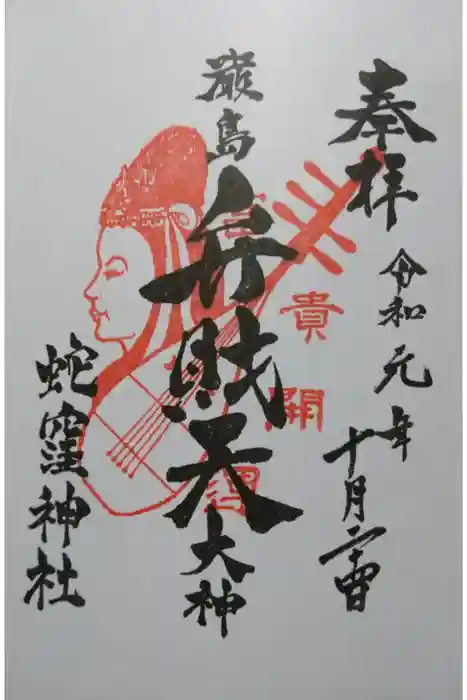 奉拝
令和元年
十月二十四日
厳島
弁財天
大神
貴
開
運
蛇窪神社